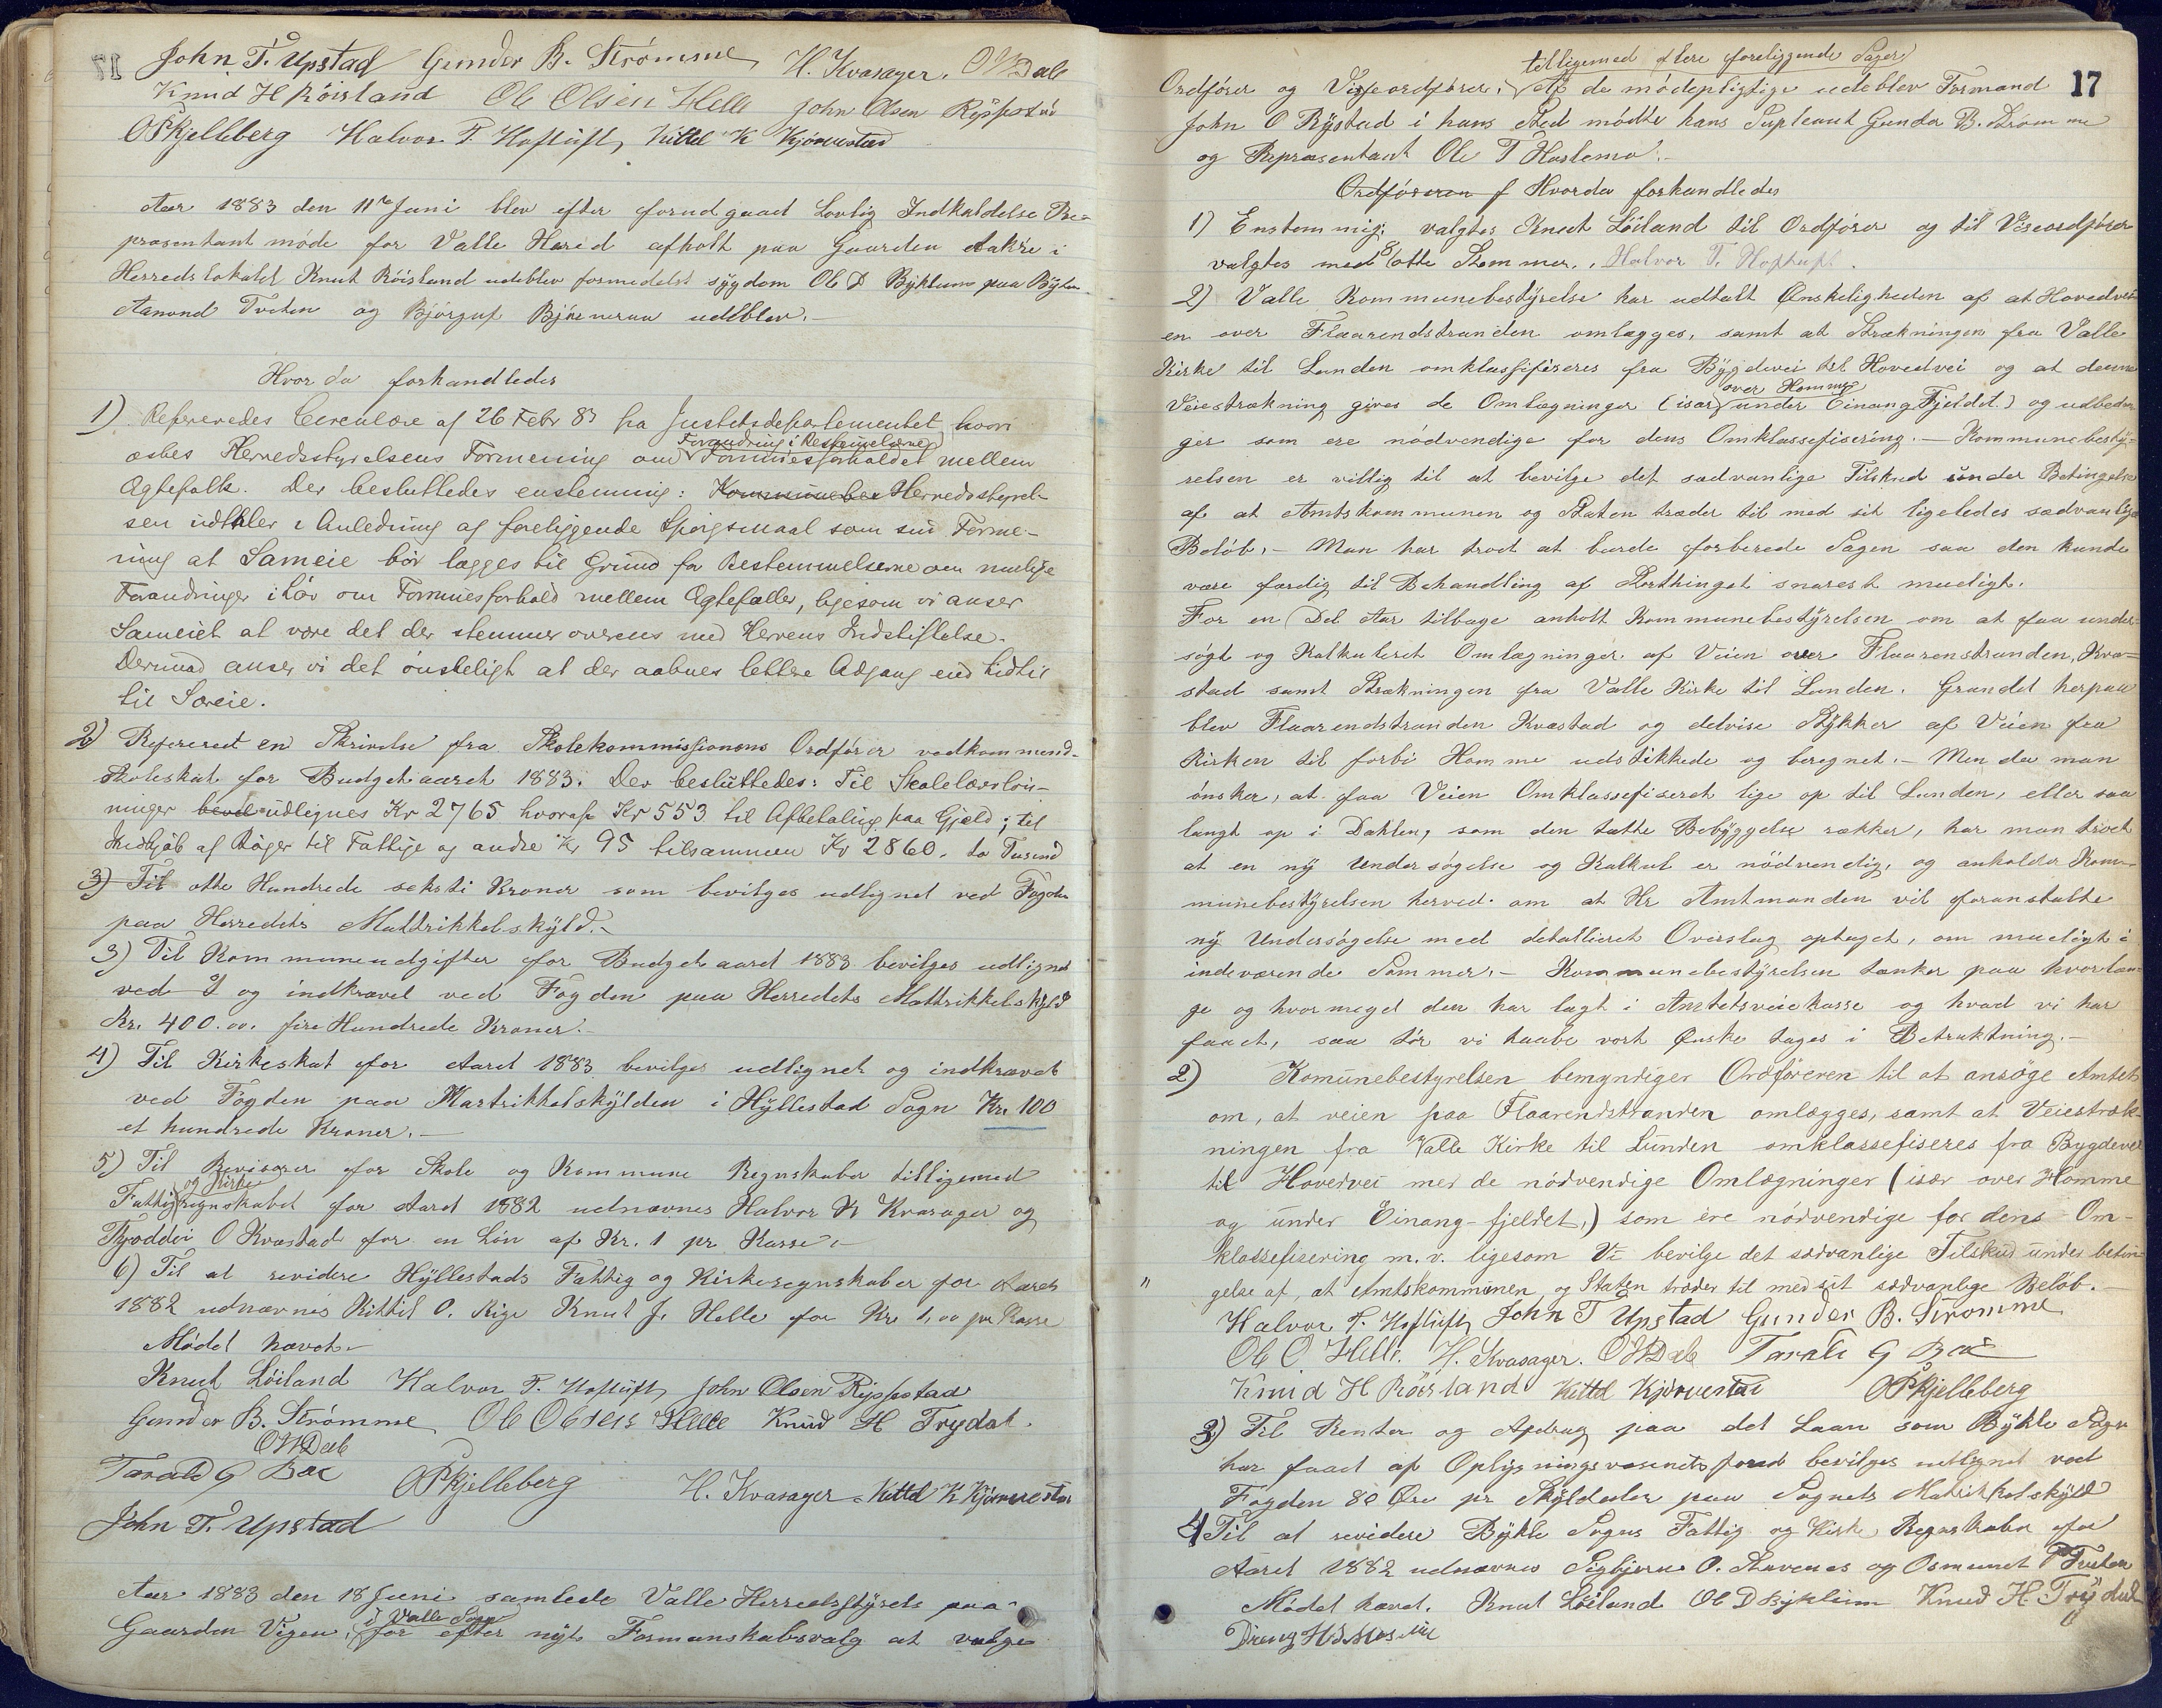 John T. Upstad Gunder B. Strömme H. Kvasager. O W Dale
Knud H Röisland Ole Olsen Helle John Olsen Rysstad
O P Kjelleberg Halvor T. Hoftuft, Kittel K Kjörvestad
Aar 1883 den 11te Juni blev efter forudgaaet Lovlig Indkaldelse Re-
præsentant möde for Valle Hered afholt paa Gaarden Aakre i
Herredslokalet Knut Röisland udeblev formedelst sygdom Ole D Byklum paa Bygland
Aamond Tveten og Björguf Björnaraa udeblev.-
Hvor da forhandledes
1) Refereredes Circulære af 26 Febr 83 fra Justitsdepartementet hvori
Forandring i Bestemmelserne
æskes Herredsstyrelsens Formening om Formuesforholdet mellem
Ægtefolk. Der besluttedes enstemmig: Kommunebes Herredsstyrel-
sen udtaler i Anledning af foreliggende Spörgsmaal som sin Forme-
ning at Sameie bör lægges til Grund for Bestemmelserne om mulige
Forandringer i Lov om Formuesforhold mellem Ægtefæller, ligesom vi anser
Sameiet at være det der stemmer overens med Herrens Indstiftelse.
Derimod anser vi det önskeligt at der aabnes lettere Adgang end hidtil
til Særeie.
2) Refereret en Skrivelse fra Skolekommissionens Ordförer vedkommend-
Skoleskat for Budgetaaret 1883. Der besluttedes: Til Skolelærerlön-
ninger bevil udlignes Kr 2765 hvoraf Kr 553 til Afbetaling paa Gjæld; til
Indkjöb af Böger til Fattige og andre Kr 95 tilsammen Kr 2860. to Tusend
3) Til otte Hundrede seksti Kroner som bevilges udlignet ved Fogden
paa Herredets Mattrikkelskyld.-
3) Til Kommuneudgifter for Budgetaaret 1883 bevilges udlignet
ved I og indkrævet ved Fogden paa Herredets Mattrikkelskyld
Kr. 400.00. fire Hundrede Kroner.-
4) Til Kirkeskat for Aaret 1883 bevilges udlignet og indkrævet
ved Fogden paa Martrikkelskylden i Hyllestad Sogn Kr. 100
et hundrede Kroner.-
5) Til Revisorer for Skole og Kommune Regnskaber tilligemed
og Kirke
Fattigregnskabet for Aaret 1882 udnævnes Halvor K Kvasager og
Tjoddöi O Kvæstad for en Lön af Kr. 1 pr Kasse.-
6) Til at revidere Hyllestads Fattig og Kirkeregnskaber for Aaret
1882 udnævnes Kittil O. Rige Knut J. Helle for Kr 1,00 pr Kasse
Mödet hævet.-
Knut Löiland Halvor T. Hoftuft, John Olsen Rysstad
Gunder B. Strömme Ole Olsen Helle Knud H Trydal.
O W Dale
Tarald G Bae O P Kjelleberg H. Kvasager. Kittel K Kjörvestad
John T. Upstad
Aar 1883 den 18 Juni samlede Valle Herredsstyrels paa
i Valle Sogn
Gaarden Vigen, for efter nyt Formanskabsvalg at vælge
17
tilligemed flere foreliggende Sager
Ordförer og Viseordförer, af de mödepligtige udeblev Formand
John O Rystad i hans Sted mödte hans Supleant Gunder B. Strömme
og Representant Ole T Harlemo.-
Ordföreren f Hvorda forhandledes
1) Enstemmig valgtes Knut Löiland til Ordförer og til Viseordförer
valgtes med 8 otte Stemmer, Halvor T. Hoftuft.
2) Valle Kommunebestyrelse har udtalt Ønskeligheden af at Hovedvei
en over Flaarendstranden omlægges, samt at Strækningen fra Valle
Kirke til Lunden omklassifiseres fra Bygdevei til Hovedvei og at denne
over Homme
Veistrækning gives de Omlægninger (især under Einang Fjeldet) og udbedrin
ger som ere nödvendige for dens Omklassefisering.- Kommunebesty-
relsen er villig til at bevilge det sædvanlige Tilskud under Betingelse
af at Amtskommunen og Staten træder til med sit ligeledes sædvanlige
Belöb.- Man har troet at burde forberede Sagen saa den kunde
være færdig til Behandling af Storthinget snarest mueligt.
For en Del Aar tilbage anholt Kommunebestyrelsen om at faa under-
sögt og Kalkuleret Omlægninger af Veien over Flaarenstranden, Kvæ-
stad samt Strækningen fra Valle Kirke til Lunden. Grundet herpaa
blev Flaarendstranden Kvæstad og delvise Stykker af Veien fra
Kirken til forbi Homme udstikkede og beregnet.- Men da man
önsker, at faa Veien Omklassefiseret lige op til Lunden, eller saa
langt op i Dahlen, som den tætte Bebyggelse rækker, har man troet
at en ny Undersögelse og Kalkul er nödvendig, og anholder Kom-
munebestyrelsen herved om at Hr Amtmanden vil foranstalte
ny Undersögelse med detallieret Overslag optaget, om mueligt i
indeværende Sommer.- Kommunebestyrelsen tænker paa hvorlæn-
ge og hvormeget den har lagt i Amtetsveiekasse og hvad vi har
faaet, saa tör vi haabe vort Ønske tages i Betraktning.-
2) Komunebestyrelsen bemyndiger Ordföreren til at ansöge Amtet
om, at veien paa Flaarendstranden omlægges, samt at Veiestræk-
ningen fra Valle Kirke til Lunden omklassefiseres fra Bygdevei
til Hovedvei med de nödvendige Omlægninger (især over Homme
og under Einang-fjeldet,) som ere nödvendige for dens Om-
klassefisering m.v. ligesom Vi bevilge det sædvanlige Tilskud under betin
" gelse af, at Amtskommunen og Staten træder til med sit sædvanlige Belöb.-
Halvor T. Hoftuft, John T Upstad Gunder B. Strömme
Ole O. Helle. H. Kvasager. O W Dale Tarald G Bae
Knud H Röisland Kittel Kjörvestad O P Kjelleberg
3) Til Renter og Afdrag paa det Laan som Bykle Sogn
har faaet af Oplysningsvæsenets fond bevilges udlignet ved
Fogden 80 Øre pr Skylddaler paa Sognets Matrikkelskyld
4 Til at revidere Bykle Sogns Fattig og Kirke Regnskaber for
Aaret 1882 udnævnes Sigbjörn O. Stavenes og Osmund Tveten
Mödet hævet. Knut Löiland Ole D Byklum Knud H. Trydal
Dreng